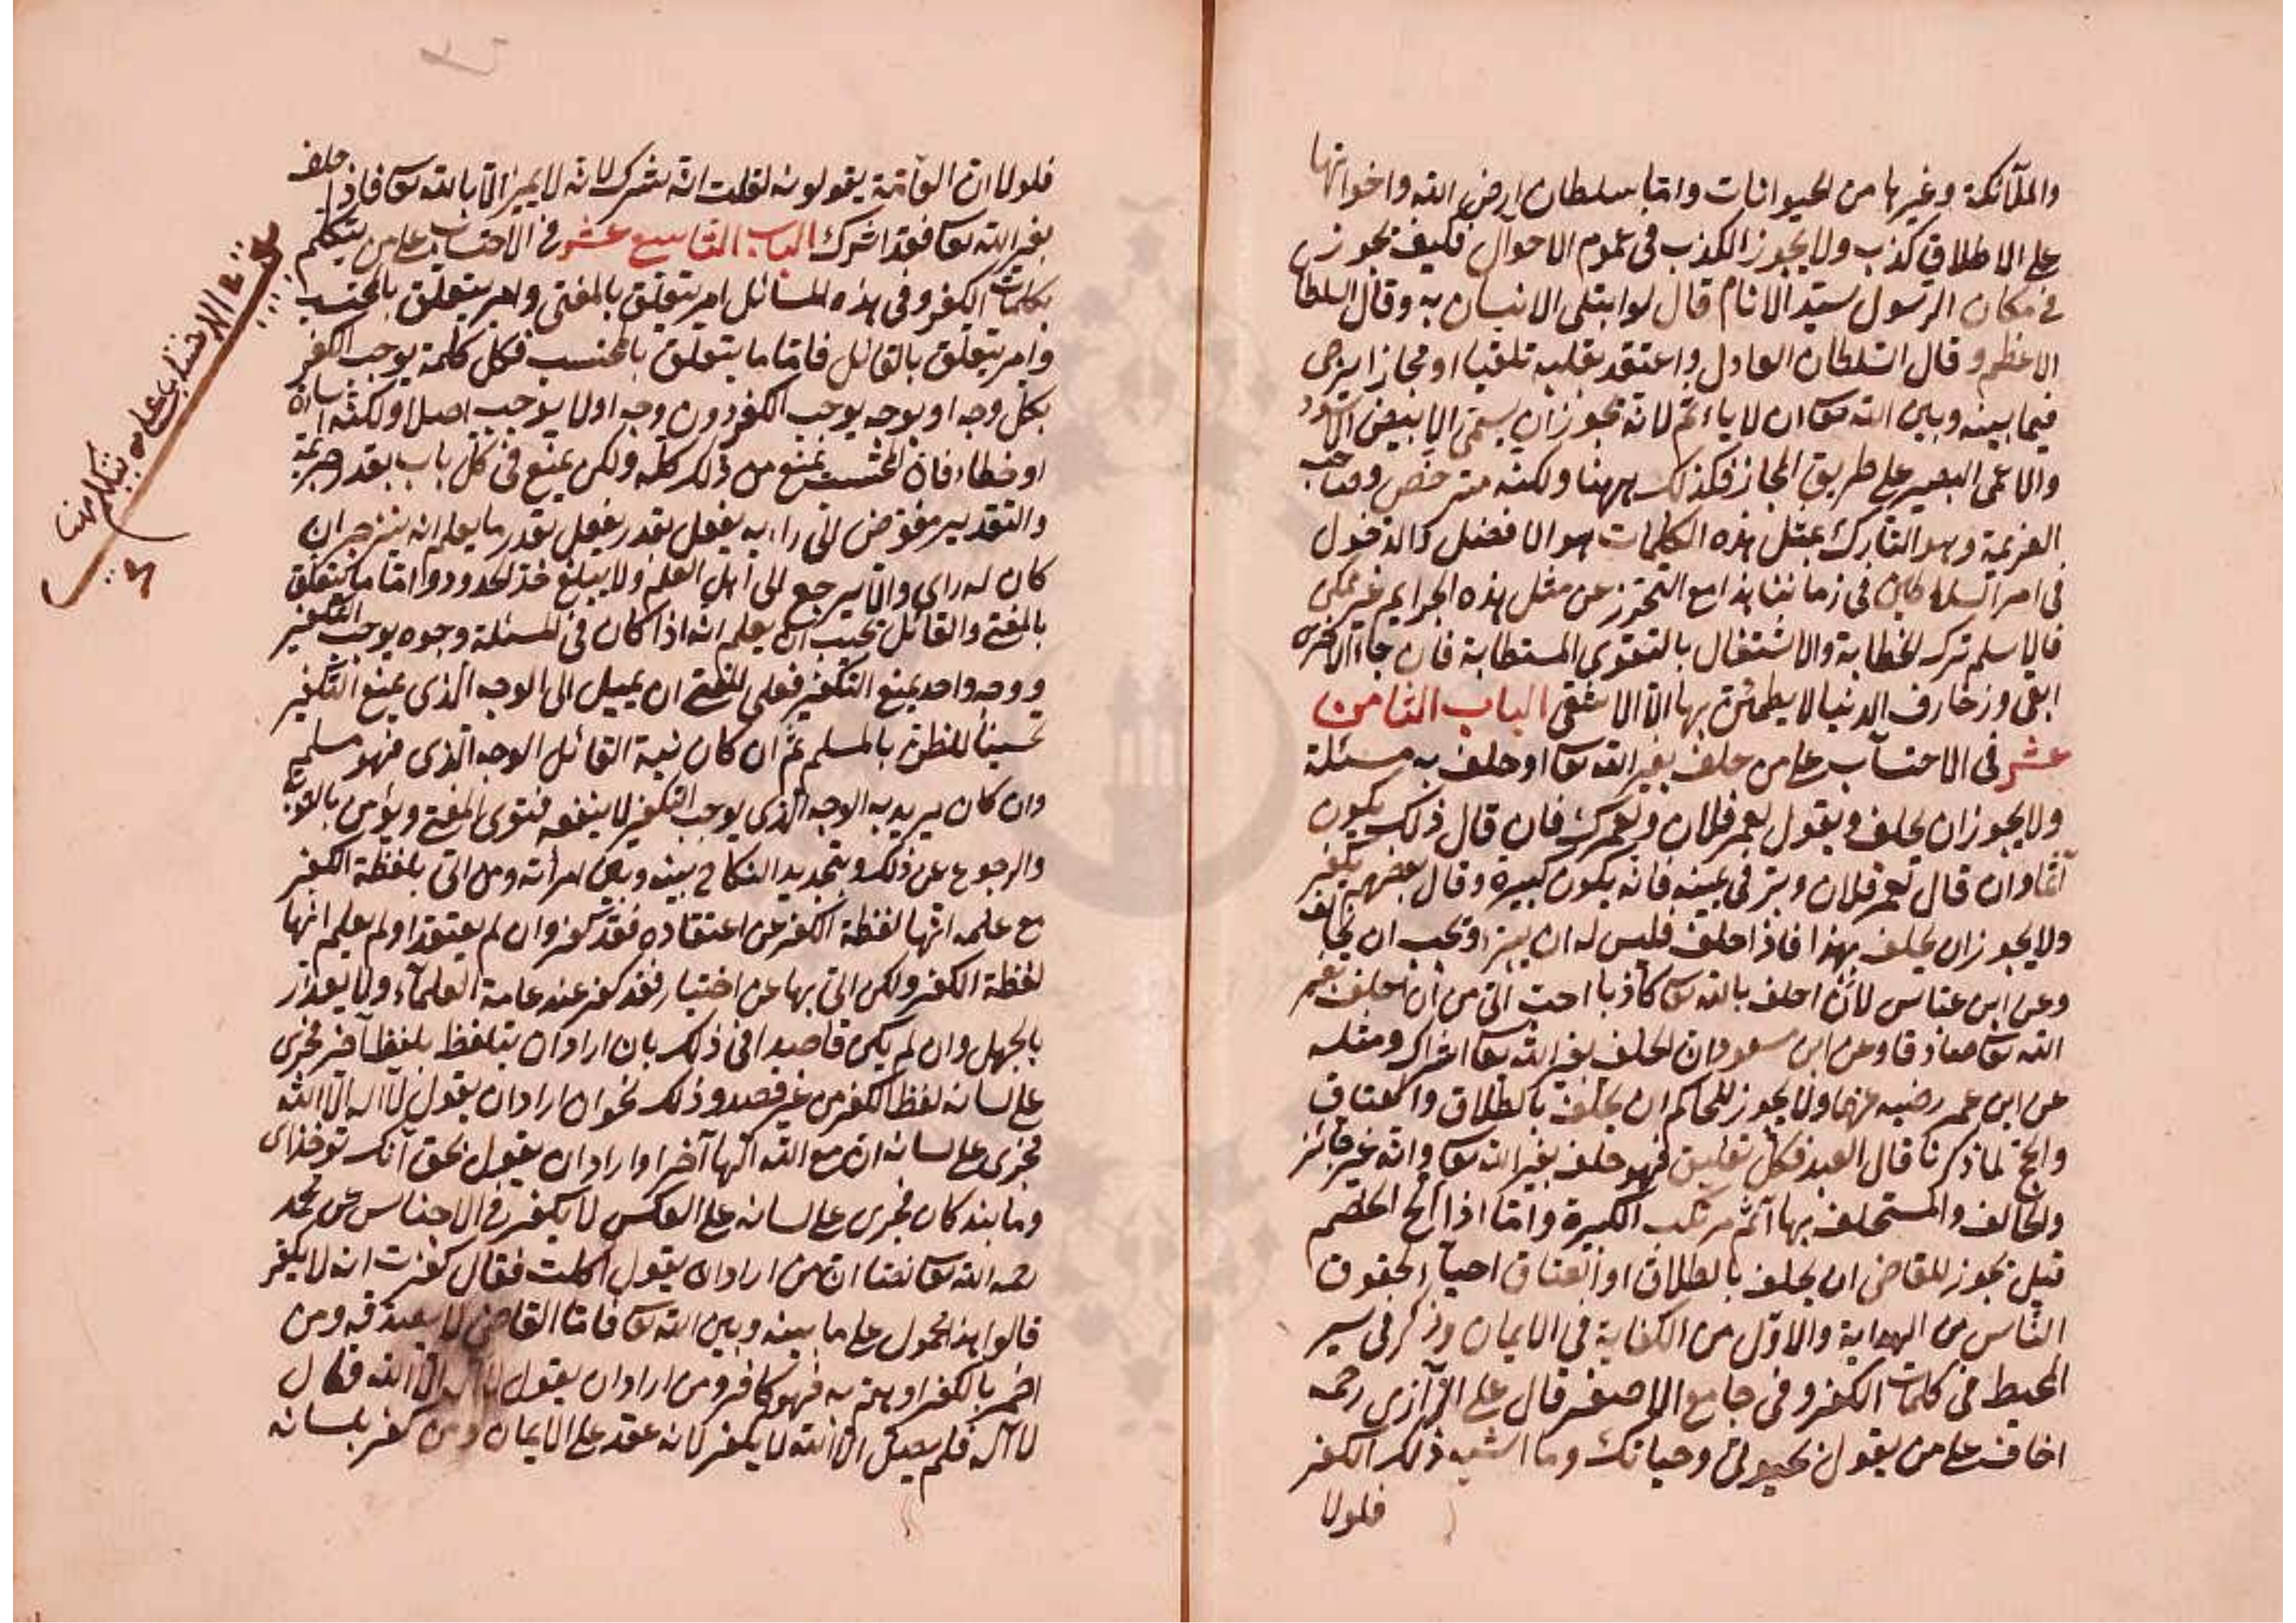 والملآئكة وغيرها من الحيوانات وامّا سلطان ارض الله واخواتها
على الاطلاق كذب ولا يجوز الكذب فى عموم الاحوال فكيف تجوزن
فى مكان الرسول سيّد الانام قال لو ابتلى الانسان به وقال السلطا
الاعظم وقال السّلطان العادل واعتقد بقلبه تلقيبا او مجازا يرجى
فيما بينه وبين الله تعا ان لا يأثم لانّه يجوز ان يسمّى الابيض الاسود
والاعمى البصير على طريق المجاز فكذلك ههنا ولكنه مترخّص وصاحب
العزيمة وهو التارك بمثل هذه الكلمات هو الافضل والدخول
فى امر السلاطين فى زماننا هذا مع التحرّز عن مثل هذه الجرايم غير ممكن
فالاسلم ترك الخطابة والاشتغال بالتقوى المستطابة فان جاه الاخرى
ابقى وزخارف الدنيا لا يطمئنّ بها الّا الاشقى الباب الثامن
عشر فى الاحتساب على من حلف بغير الله تعا او حلف به مسئلة
ولا يجوز ان يحلف ويقول لعمر فلان ولعمرك فان قال ذلك يكون
آثما وان قال لعمر فلان وبرّ فى يمينه فانّه يكون كبيرة وقال بعضهم يكفر
ولا يجوز ان يحلف بهذا فاذا حلف فليس له ان يبرّ ويجب ان يخالف
وعن ابن عبّاس لأن احلف بالله تعا كاذبا احبّ الىّ من ان احلف بغير
الله تعا صادقا وعن ابن مسعود ان الحلف بغير الله تعا اشراك ومثله
عن ابن عمر رضيه عنهما ولا يجوز للحاكم ان يحلّف بالطلاق والعتاق
والحج لما ذكرنا قال العبد فكلّ تعليق فهو حلف بغير الله تعا وانّه غير جائز
والحالف والمستحلف بها آثم مرتكب الكبيرة وامّا اذا الحّ الخصم
قيل يجوز للقاضى ان يحلف بالطلاق او العتاق احياء لحقوق
النّاس من الهداية والاوّل من الكفاية فى الايمان وذكر فى سير
المحيط فى كلمات الكفر وفى جامع الاصغر قال على الرّازى رحمه
اخاف على من يقول بحيوتى وحياتك وما اشبه ذلك الكفر
فلولا
فلولا ان العآمّة يقولونه لقلت انّه شرك لانّه لا يمين الّا بالله تعا فاذا حلف
بغير الله تعا فقد اشرك الباب التاسع عشر فى الاحتساب على من يتكلم
بكلمات الكفر وفى هذه المسائل امر يتعلّق بالمفتى وامر يتعلّق بالمحتسب
وامر يتعلّق بالقائل فامّا ما يتعلّق بالمحتسب فكل كلمة يوجب الكفر
بكل وجه او بوجه يوجب الكفر دون وجه او لا يوجب اصلا ولكنّه اساءة
او خطاء فان المحتسب يمنع من ذلك كلّه ولكن يمنع فى كلّ باب بقدر جريمة
والتقدير مفوّض الى رايه يفعل بقدر يفعل بقدر ما يعلم انه ينزجر ان
كان له راى والّا يرجع الى اهل العلم ولا يبلغ حدّ الحدود وامّا ما يتعلق
بالمفتى والقائل يجب ان يعلم انه اذا كان فى المسئلة وجوه يوجب التكفير
ووجه واحد يمنع التكفير فعلى المفتى ان يميل الى الوجه الذى يمنع التكفير
تحسينا للظنّ بالمسلم ثمّ ان كان نية القائل الوجه الذى فهو مسلم
وان كان يريد به الوجه الّذى يوجب التكفير لا ينفعه فتوى المفتى ويؤمر بالتوبة
والرجوع عن ذلك وبتجديد النكاح بينه وبين امرأته ومن اتى بلفظة الكفر
مع علمه انّها لفظة الكفر عن اعتقاده فقد كفر وان لم يعتقد او لم يعلم انها
لفظة الكفر ولكن اتى بها عن اختيار فقد كفر عند عامة العلمآء ولا يعذر
بالجهل وان لم يكن قاصدا فى ذلك بان اراد ان يتلفظ بلفظ آخر فجرى
على لسانه لفظ الكفر من غير قصد وذلك نحو ان اراد ان يقول لا اله الّا الله
فجرى على لسانه انّ مع الله آلها آخر او اراد ان يقول بحق آنك تو خداى
وما بندكان فجرى على لسانه على العكس لا يكفر فى الاجناس عن محمد
رحمه الله تعا نصّا انّ من اراد ان يقول اكلت فقال كفرت انه لا يكفر
قالوا هذا محمول على ما بينه وبين الله تعا فامّا القاضى لا يصدقه ومن
اضمر بالكفر او همّ به فهو كافر ومن اراد ان يقول لا اله الّا الله فقال
لا اله فلم يصل الّا الله لا يكفر لانه عقد على الايمان ومن كفر بلسانه
الاحتساب على من يتكلم